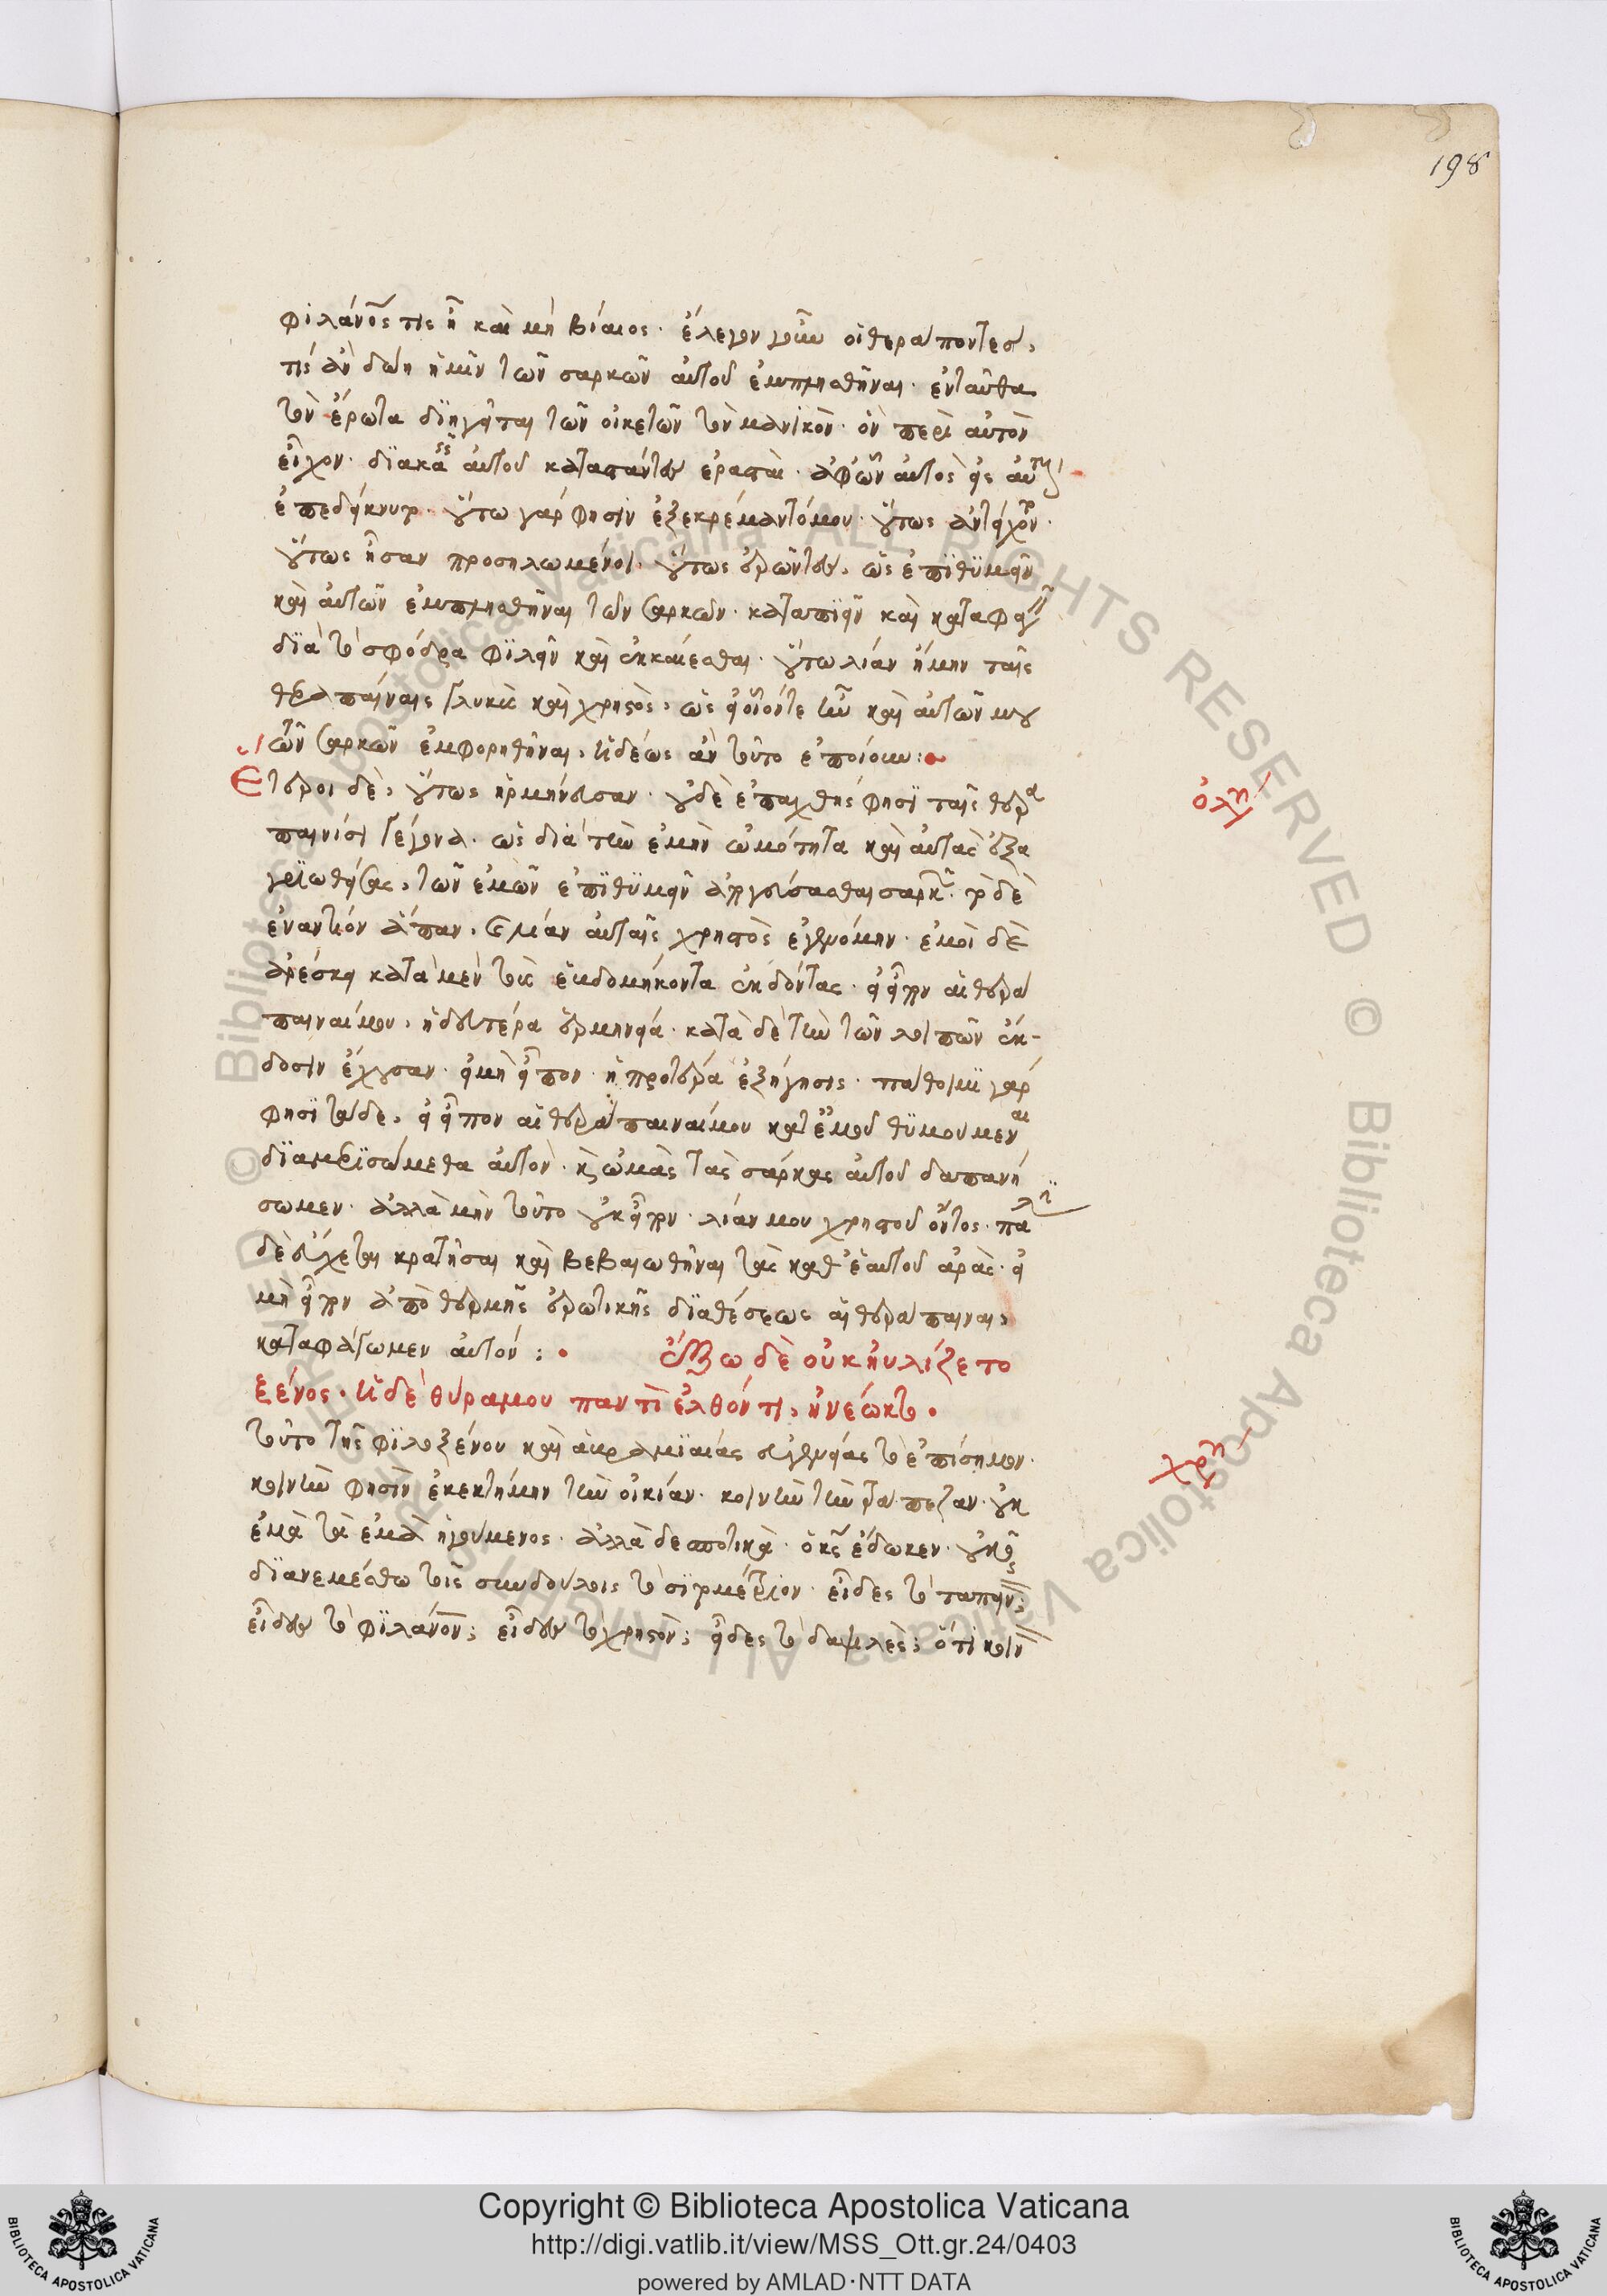 198
φιλάνος τις ἦ καὶ μὴ βίαιος· ἔλεγον γοῦν οἱ θεράποντες,
τίς ἂν δώη ἡμῖν τῶν σαρκῶν αὐτοῦ ἐμπλησθῆναι· ἐνταῦθα
τὸν ἔρωτα διηγεῖται τῶν οἰκετῶν τὸν μανικὸν· ὃν περὶ αὐτὸν
εἶχον· αὐτοῦ καταπάντων ἐρασταὶ· ἀφῶν αὐτὸς εἰς
ἐπεδείκνυτο· οὕτω γάρ φησιν ἐξεκρέμαντό μου· οὕτως ἀντείχον·
οὕτως ἦσαν προσηλωμένοι· οὕτως ἐρῶντες, ὡς ἐπιθυμεῖν
καὶ αὐτῶν ἐμπλησθῆναι τῶν σαρκῶν· καταπιεῖν καὶ καταφαγεῖν
διὰ τὸ σφόδρα φιλεῖν καὶ ἐκκαίεσθαι· οὕτω λίαν ἤμην ταῖς
θεραπαίναις γλυκὺς καὶ χρηστὸς, ὡς εἰ οἷόντε ἦν καὶ αὐτῶν μου
τῶν σαρκῶν ἐμφορηθῆναι, ἡδέως ἂν τοῦτο ἐποίουν:
Ἕτεροι δὲ, οὕτως ἡρμήνευσαν· οὐδὲ ἐπαχθής φησι ταῖς θερα
παινίσι γέγονα· ὡς διὰ τὴν ἐμὴν ὠμότητα καὶ αὐτὰς ἐξα
γριωθείσας, τῶν ἐμῶν ἐπιθυμεῖν ἀπογεύσασθαι σαρκῶν· τὸ δὲ
ἐναντίον ἅπαν, λίαν αὐταῖς χρηστὸς ἐγενόμην· ἐμοὶ δὲ
ἀρέσκει κατὰ μὲν τοὺς ἑβδομήκοντα ἐκδόντας· εἰ εἶπον αἱ θερά
παιναί μου, ἡ δευτέρα ἑρμηνεία· κατὰ δὲ τὴν τῶν λοιπῶν ἔκ-
δοσιν ἔχουσαν· εἰ μὴ εἶπον· ἡ προτέρα ἐξήγησις· πάθοιμι γάρ
φησι τάδε, εἰ εἶπον αἱ θεράπαιναί μου κατ' ἐμοῦ θυμούμεναι
διαμερισώμεθα αὐτὸν· καὶ ὠμὰς τὰς σάρκας αὐτοῦ δαπανή
σωμεν· ἀλλὰ μὴν τοῦτο οὐκ εἶπον· λίαν μου χρηστοῦ ὄντος· πάλιν
δὲ εὔχεται κρατῆσαι καὶ βεβαιωθῆναι τὰς καθ' ἑαυτοῦ ἀρὰς· εἰ
μὴ εἶπον ἀπὸ θερμῆς ἐρωτικῆς διαθέσεως αἱ θεράπαιναι,
καταφάγωμεν αὐτόν: ἔξω δὲ οὐκ ηὐλίζετο
ξένος· ἡ δὲ θύρα μου παντὶ ἐλθόντι, ἠνέωκτο·
τοῦτο τῆς φιλοξένου καὶ ἀβραμιαίας εὐγενείας τὸ ἐπίσημον·
κοινὴν φησὶν ἐκεκτήμην τὴν οἰκίαν· κοινὴν τὴν τράπεζαν· οὐκ
ἐμὰ τὰ ἐμὰ ἡγούμενος· ἀλλὰ δεσποτικὰ· ὁ κς ἔδωκεν·
διανεμέσθω τοῖς συνδούλοις τὸ σιτομέτριον· εἶδες τὸ ταπεινὸν;
εἶδες τὸ φιλάνον; εἶδες τὸ χρηστὸν; εἶδες τὸ δαψιλὲς; ὅτι κοιν
ὀλυ
χρυ
Copyright © Biblioteca Apostolica Vaticana
http://digi.vatlib.it/view/MSS_Ott.gr.24/0403
powered by AMLAD·NTT DATA
BIBLIOTECA APOSTOLICA VATICANA
BIBLIOTECA APOSTOLICA VATICANA
© Biblioteca Apostolica Vaticana ALL RIGHTS RESERVED
© Biblioteca Apostolica Vaticana ALL RIGHTS RESERVED